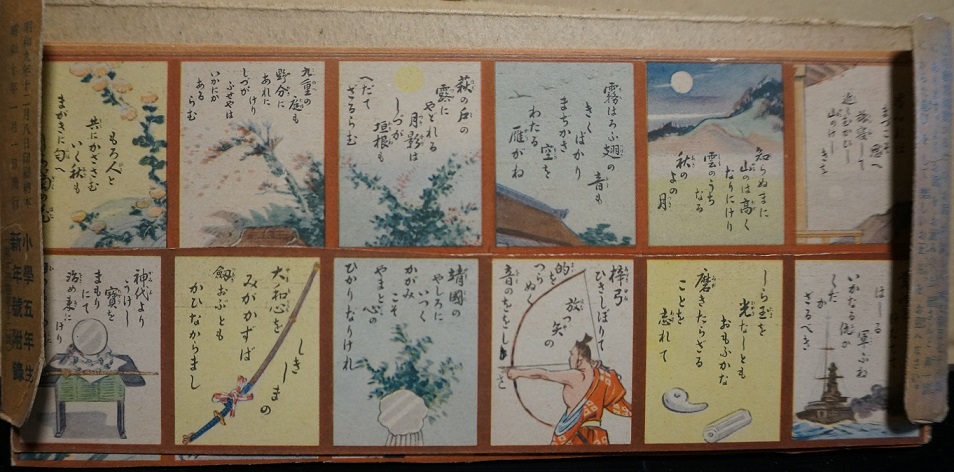 知らぬまに
山のは高く
なりにけり
雲のうち
なる
秋の
よの月
霧はらふ翅の音も
きくばかり
まちかき空を
わたる
雁がね
萩の戸の
露に
やどれる
月影は
しづが
垣根も
へだて
ざるらむ
九重の庭も
野分に
あれに
けり
しづが
ふせやは
いかにか
ある
らむ
もろ人と
共にかざさむ
いく秋も
まがきに匂へ
はしる
軍ぶね
いかなる仇か
さるべき
しら玉を
光なしとも
おもふかな
磨きたらざる
ことを
忘れて
梓弓
ひきしぼりて
放つ矢の
的を
つらぬく
音の
靖國の
やしろに
いつく
かがみこそ
やまと心の
ひかりなりけれ
しきしまの
大和心を
みがかずば
劔おぶとも
かひなからまし
神代より
うけし
寶を
まもり
にて
治め来に
けり
小學五年生
新年號附錄
昭和九年十二月八日印刷納本